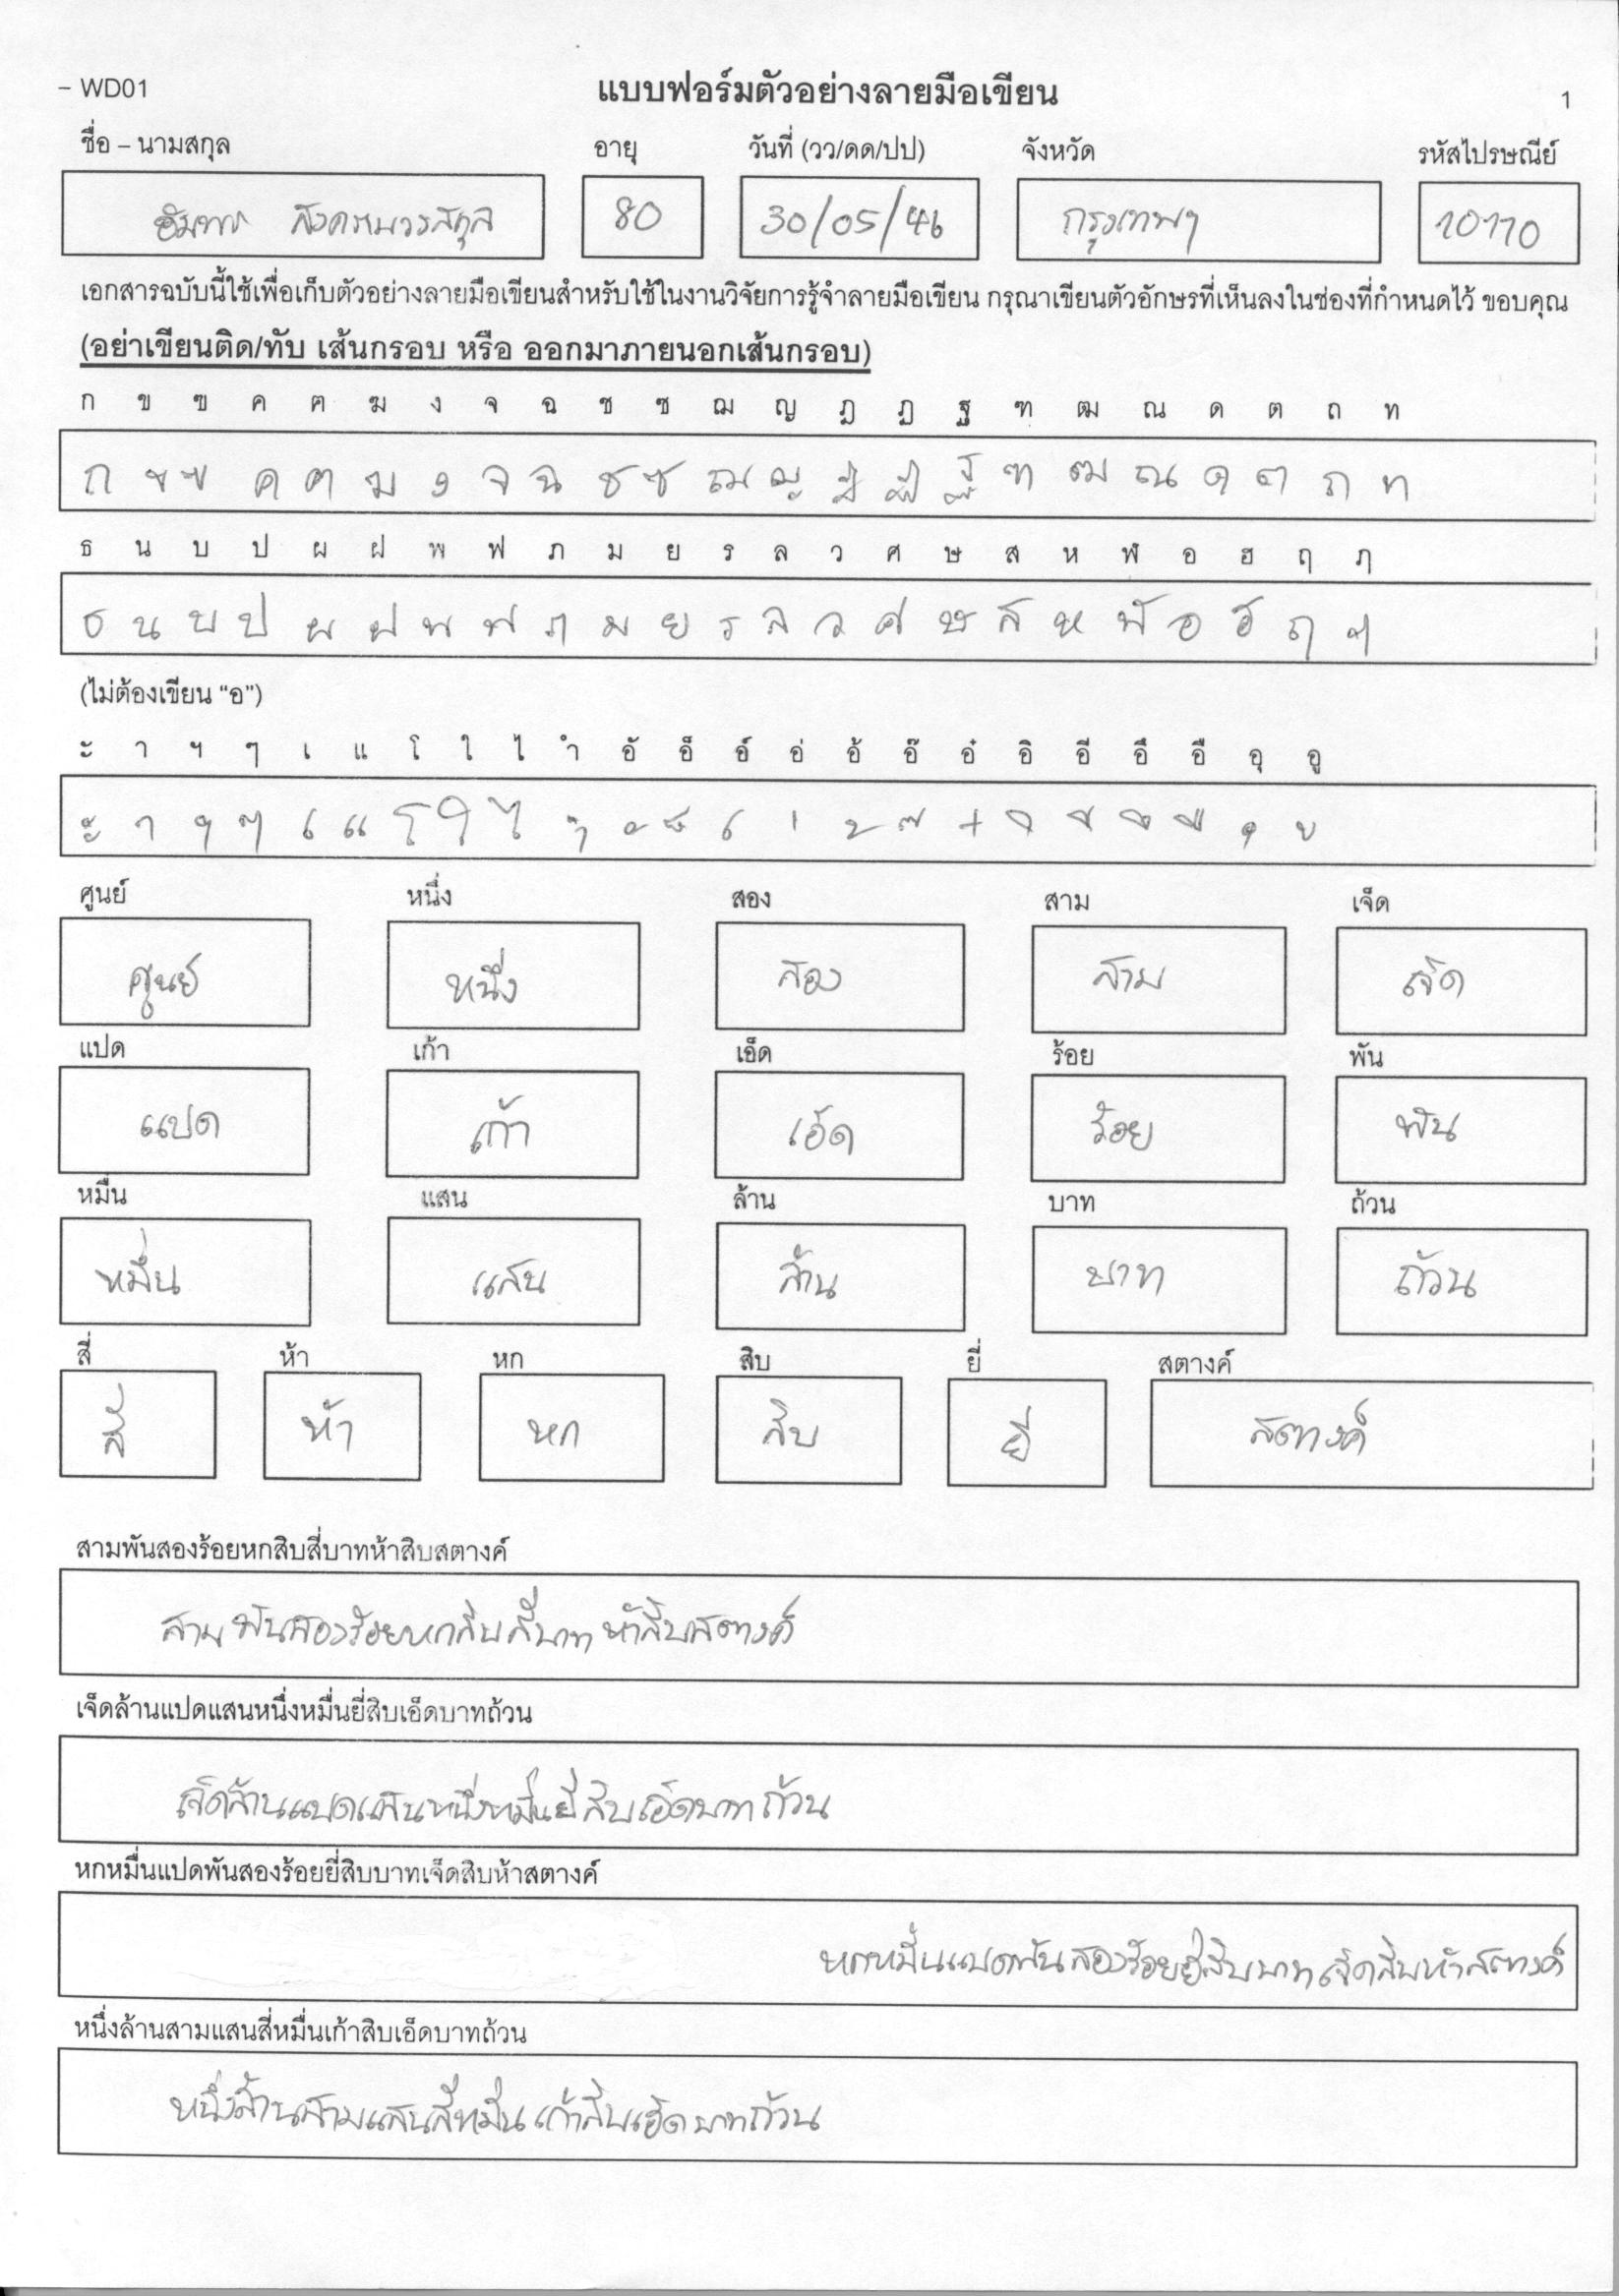 – WD01
แบบฟอร์มตัวอย่างลายมือเขียน
1
ชื่อ – นามสกุล อายุ วันที่ (วว/ดด/ปป) จังหวัด รหัสไปรษณีย์
80 30/05/46 กรุงเทพฯ 10110
เอกสารฉบับนี้ใช้เพื่อเก็บตัวอย่างลายมือเขียนสำหรับใช้ในงานวิจัยการรู้จำลายมือเขียน กรุณาเขียนตัวอักษรที่เห็นลงในช่องที่กำหนดไว้ ขอบคุณ
(อย่าเขียนติด/ทับ เส้นกรอบ หรือ ออกมาภายนอกเส้นกรอบ)
ก ข ฃ ค ฅ ฆ ง จ ฉ ช ซ ฌ ญ ฎ ฏ ฐ ฑ ฒ ณ ด ต ถ ท
ก ข ฃ ค ฅ ฆ ง จ ฉ ช ซ ฌ ญ ฎ ฏ ฐ ฑ ฒ ณ ด ต ถ ท
ธ น บ ป ผ ฝ พ ฟ ภ ม ย ร ล ว ศ ษ ส ห ฬ อ ฮ ฤ ฦ
ธ น บ ป ผ ฝ พ ฟ ภ ม ย ร ล ว ศ ษ ส ห ฬ อ ฮ ฤ ฦ
(ไม่ต้องเขียน "อ")
ะ า ฯ ๆ เ แ โ ใ ไ ำ อั อ็ อ์ อ่ อ้ อ๊ อ๋ อิ อี อึ อื อุ อู
ะ า ฯ ๆ เ แ โ ใ ไ ำ ั ็ ์ ่ ้ ๊ ๋ ิ ี ึ ื ุ ู
ศูนย์ หนึ่ง สอง สาม เจ็ด
ศูนย์ หนึ่ง สอง สาม เจ็ด
แปด เก้า เอ็ด ร้อย พัน
แปด เก้า เอ็ด ร้อย พัน
หมื่น แสน ล้าน บาท ถ้วน
หมื่น แสน ล้าน บาท ถ้วน
สี่ ห้า หก สิบ ยี่ สตางค์
สี่ ห้า หก สิบ ยี่ สตางค์
สามพันสองร้อยหกสิบสี่บาทห้าสิบสตางค์
สามพันสองร้อยหกสิบสี่บาทห้าสิบสตางค์
เจ็ดล้านแปดแสนหนึ่งหมื่นยี่สิบเอ็ดบาทถ้วน
เจ็ดล้านแปดแสนหนึ่งหมื่นยี่สิบเอ็ดบาทถ้วน
หกหมื่นแปดพันสองร้อยยี่สิบบาทเจ็ดสิบห้าสตางค์
หกหมื่นแปดพันสองร้อยยี่สิบบาทเจ็ดสิบห้าสตางค์
หนึ่งล้านสามแสนสี่หมื่นเก้าสิบเอ็ดบาทถ้วน
หนึ่งล้านสามแสนสี่หมื่นเก้าสิบเอ็ดบาทถ้วน